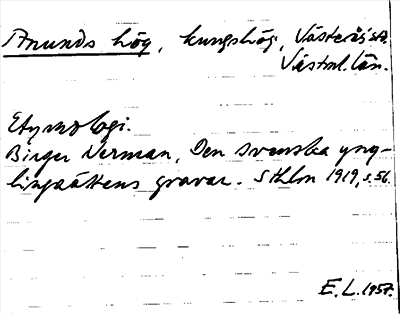 Anunds hög, kungshög, Västerås st.
Västml. län.
Etymologi.
Birger Nerman, Den svenska yng-
lingaättens gravar. Sthlm 1919, s. 56.
E. L. 1957.